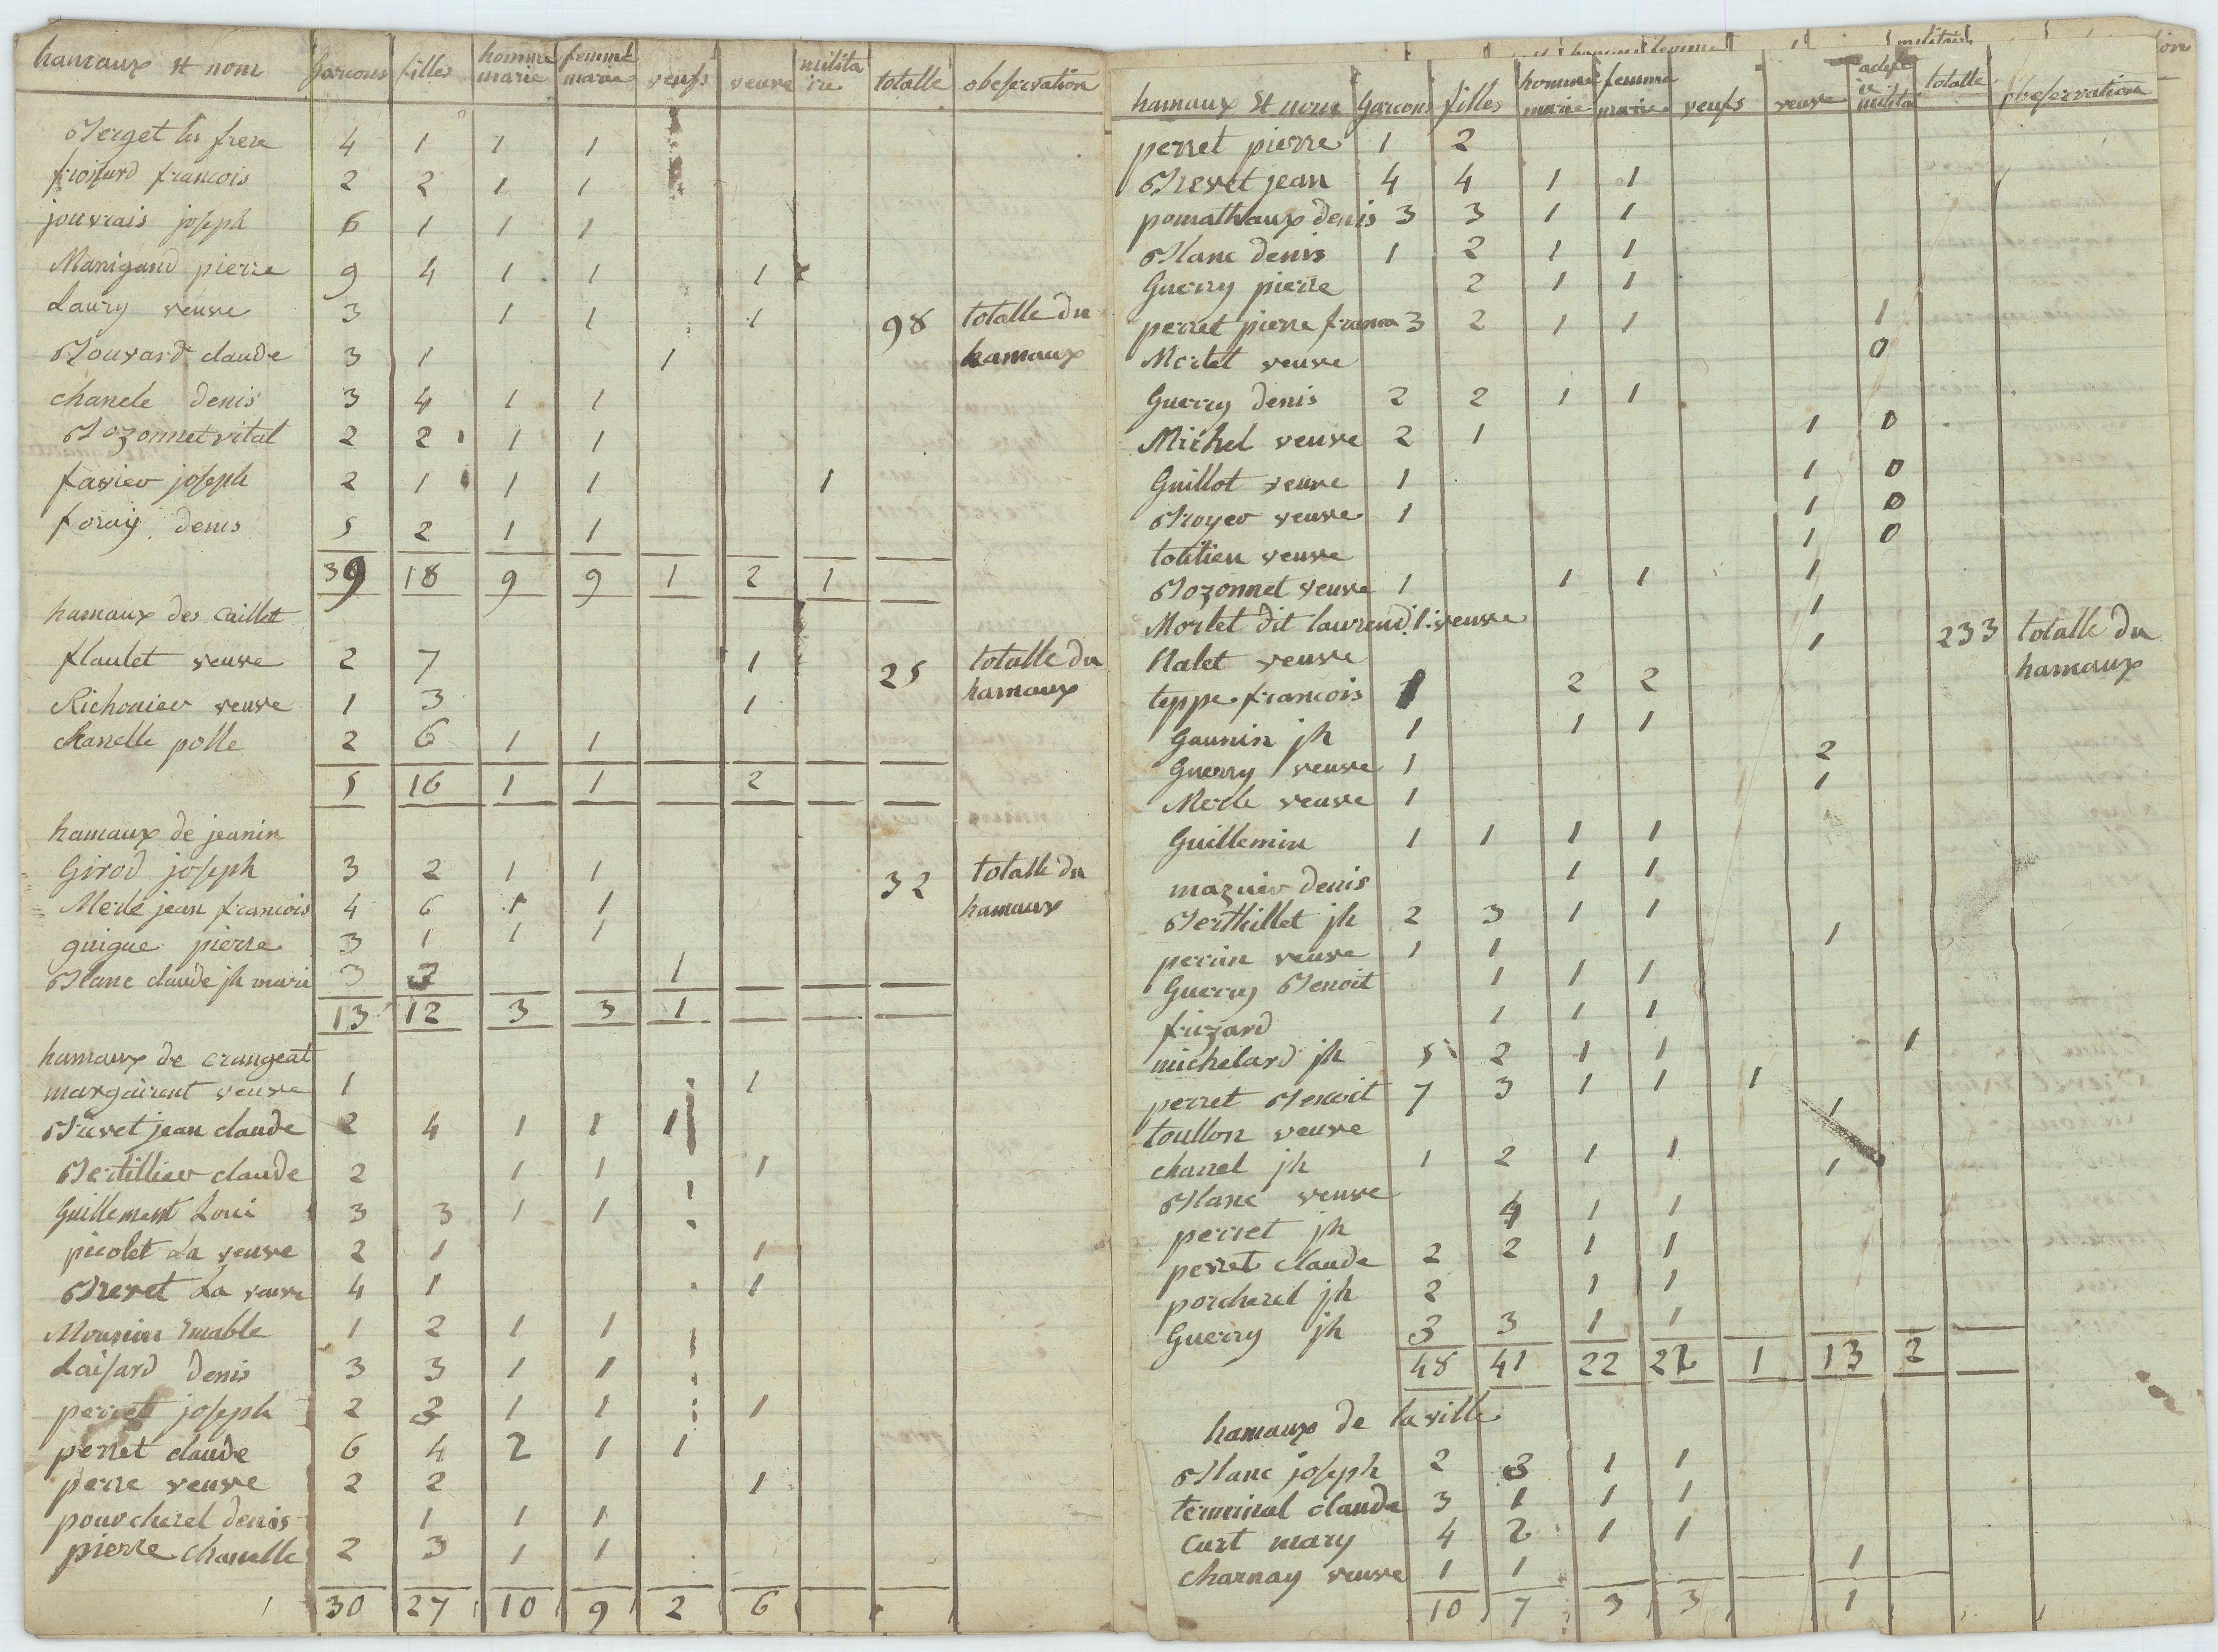 hamaux et nom garcons filles homme marie femme marie veufs veuve milita ire totalle obeservation
Berget les frere 4 1 1 1
froisard francois 2 2 1 1
jouvrais joseph 6 1 1 1
Manigand pierre 9 4 1 1 1
Laury veuve 3 1 1 1 98 totalle du
Bouvard claude 3 1 1 hamaux
chanele denis 3 4 1 1
Bozonnet vital 2 2 1 1
favier joseph 2 1 1 1 1
foray denis 5 2 1 1
39 18 9 9 1 2 1
hamaux des caillet
flautet veuve 2 7 1 25 totalle du
Richonier veuve 1 3 1 hamaux
chanelle polle 2 6 1 1
5 16 1 1 2
hamaux de jeanin
Girod joseph 3 2 1 1 32 totalle du
Merle jean francois 4 6 1 1 hamaux
guigue pierre 3 1 1 1
Blanc claude jh mari 3 3 1
13 12 3 3 1
hamaux de crangeat
margairent veuve 1 1
Buvet jean claude 2 4 1 1 1
Bertillier claude 2 1 1 1
Guillement Loui 3 3 1 1
picolet La veuve 2 1 1
Brevet La veuve 4 1 1
Mounin Emable 1 2 1 1
Laisard denis 3 3 1 1
perret joseph 2 3 1 1 1
perret claude 6 4 2 1 1
perre veuve 2 2 1
pourcherel denis 1 1 1
pierre chanelle 2 3 1 1
30 27 10 9 2 6
hamaux Et nom garcons filles homme marie femme marie veufs veuve milita totalle obeservation
perret pierre 1 2
Brevet jean 4 4 1 1
pomathaux denis 3 3 1 1
Blanc denis 1 2 1 1
Guerry pierre 2 1 1
perret pierre 3 2 1 1 1
Mortet veuve 0
Guerry denis 2 2 1 1
Michel veuve 2 1 1 0
Guillot veuve 1 1 0
Broyer veuve 1 1 0
toutien veuve 1 0
Bozonnet veuve 1 1 1 1
Mortet dit laurend 1 veuve 1
Nalet veuve 1 233 totalle du
teppe francois 1 2 2 hamaux
Gounin jh 1 1 1
Guerry veuve 1 2
Merle veuve 1 1
Guillemin 1 1 1 1
mazuier denis 1 1
Berthillet jh 2 3 1 1
perrin veuve 1 1 1
Guerry Benoit 1 1 1
frizard 1 1 1
michelard jh 5 2 1 1 1
perret Benoit 7 3 1 1 1
toullon veuve 1
chanel jh 1 2 1 1
Blanc veuve 1
perret jh 4 1 1
perret claude 2 2 1 1
porcherel jh 2 1 1
Guerry jh 3 3 1 1
48 41 22 22 1 13 2
hamaux de la ville
Blanc joseph 2 3 1 1
terminal claude 3 1 1 1
curt mary 4 2 1 1
charnay veuve 1 1 1
10 7 3 3 1